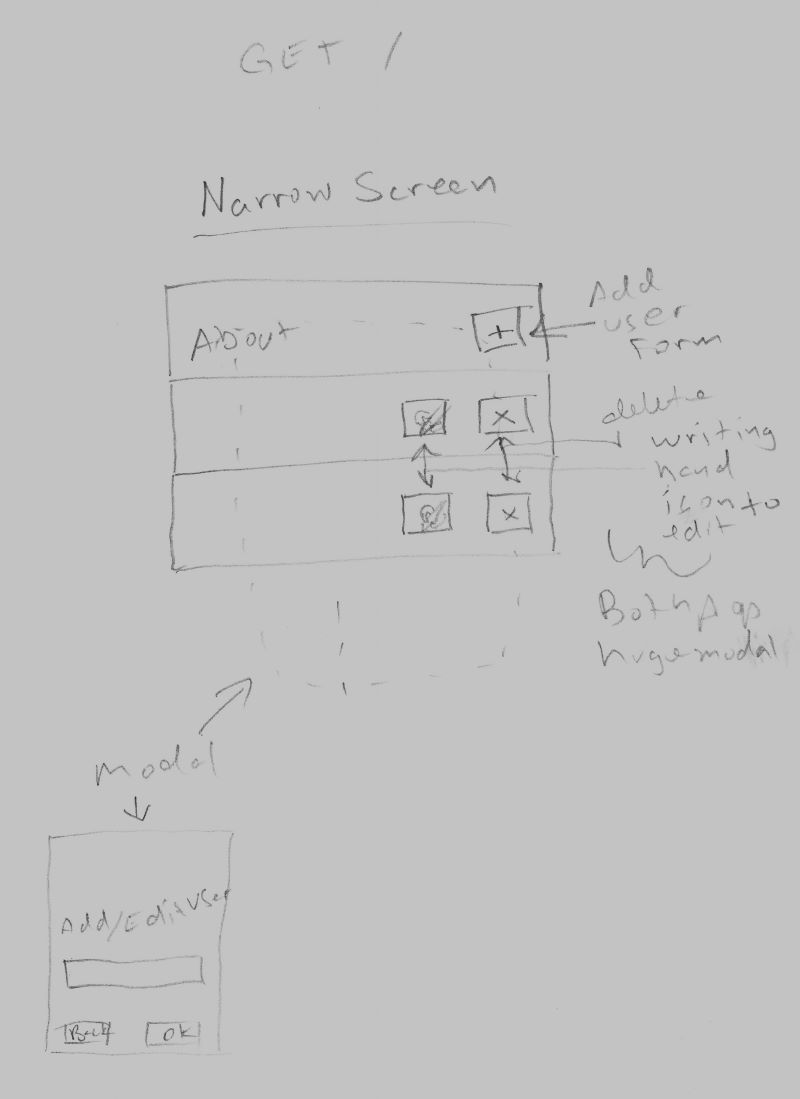 GET /
Narrow Screen
About
+
Add
user
Form
x
delete
writing
hand
icon to
edit
x
Both
huge modal
Modal
Add/Edit User
Back
OK